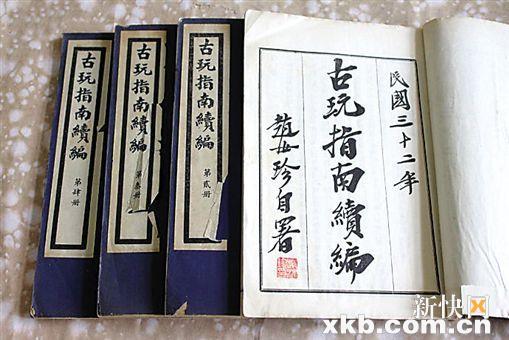 古玩指南續編
第肆册
古玩指南續編
第叁册
古玩指南續編
第貳册
民國三十二年
古玩指南續編
趙汝珍自署
新快
xkb.com.cn